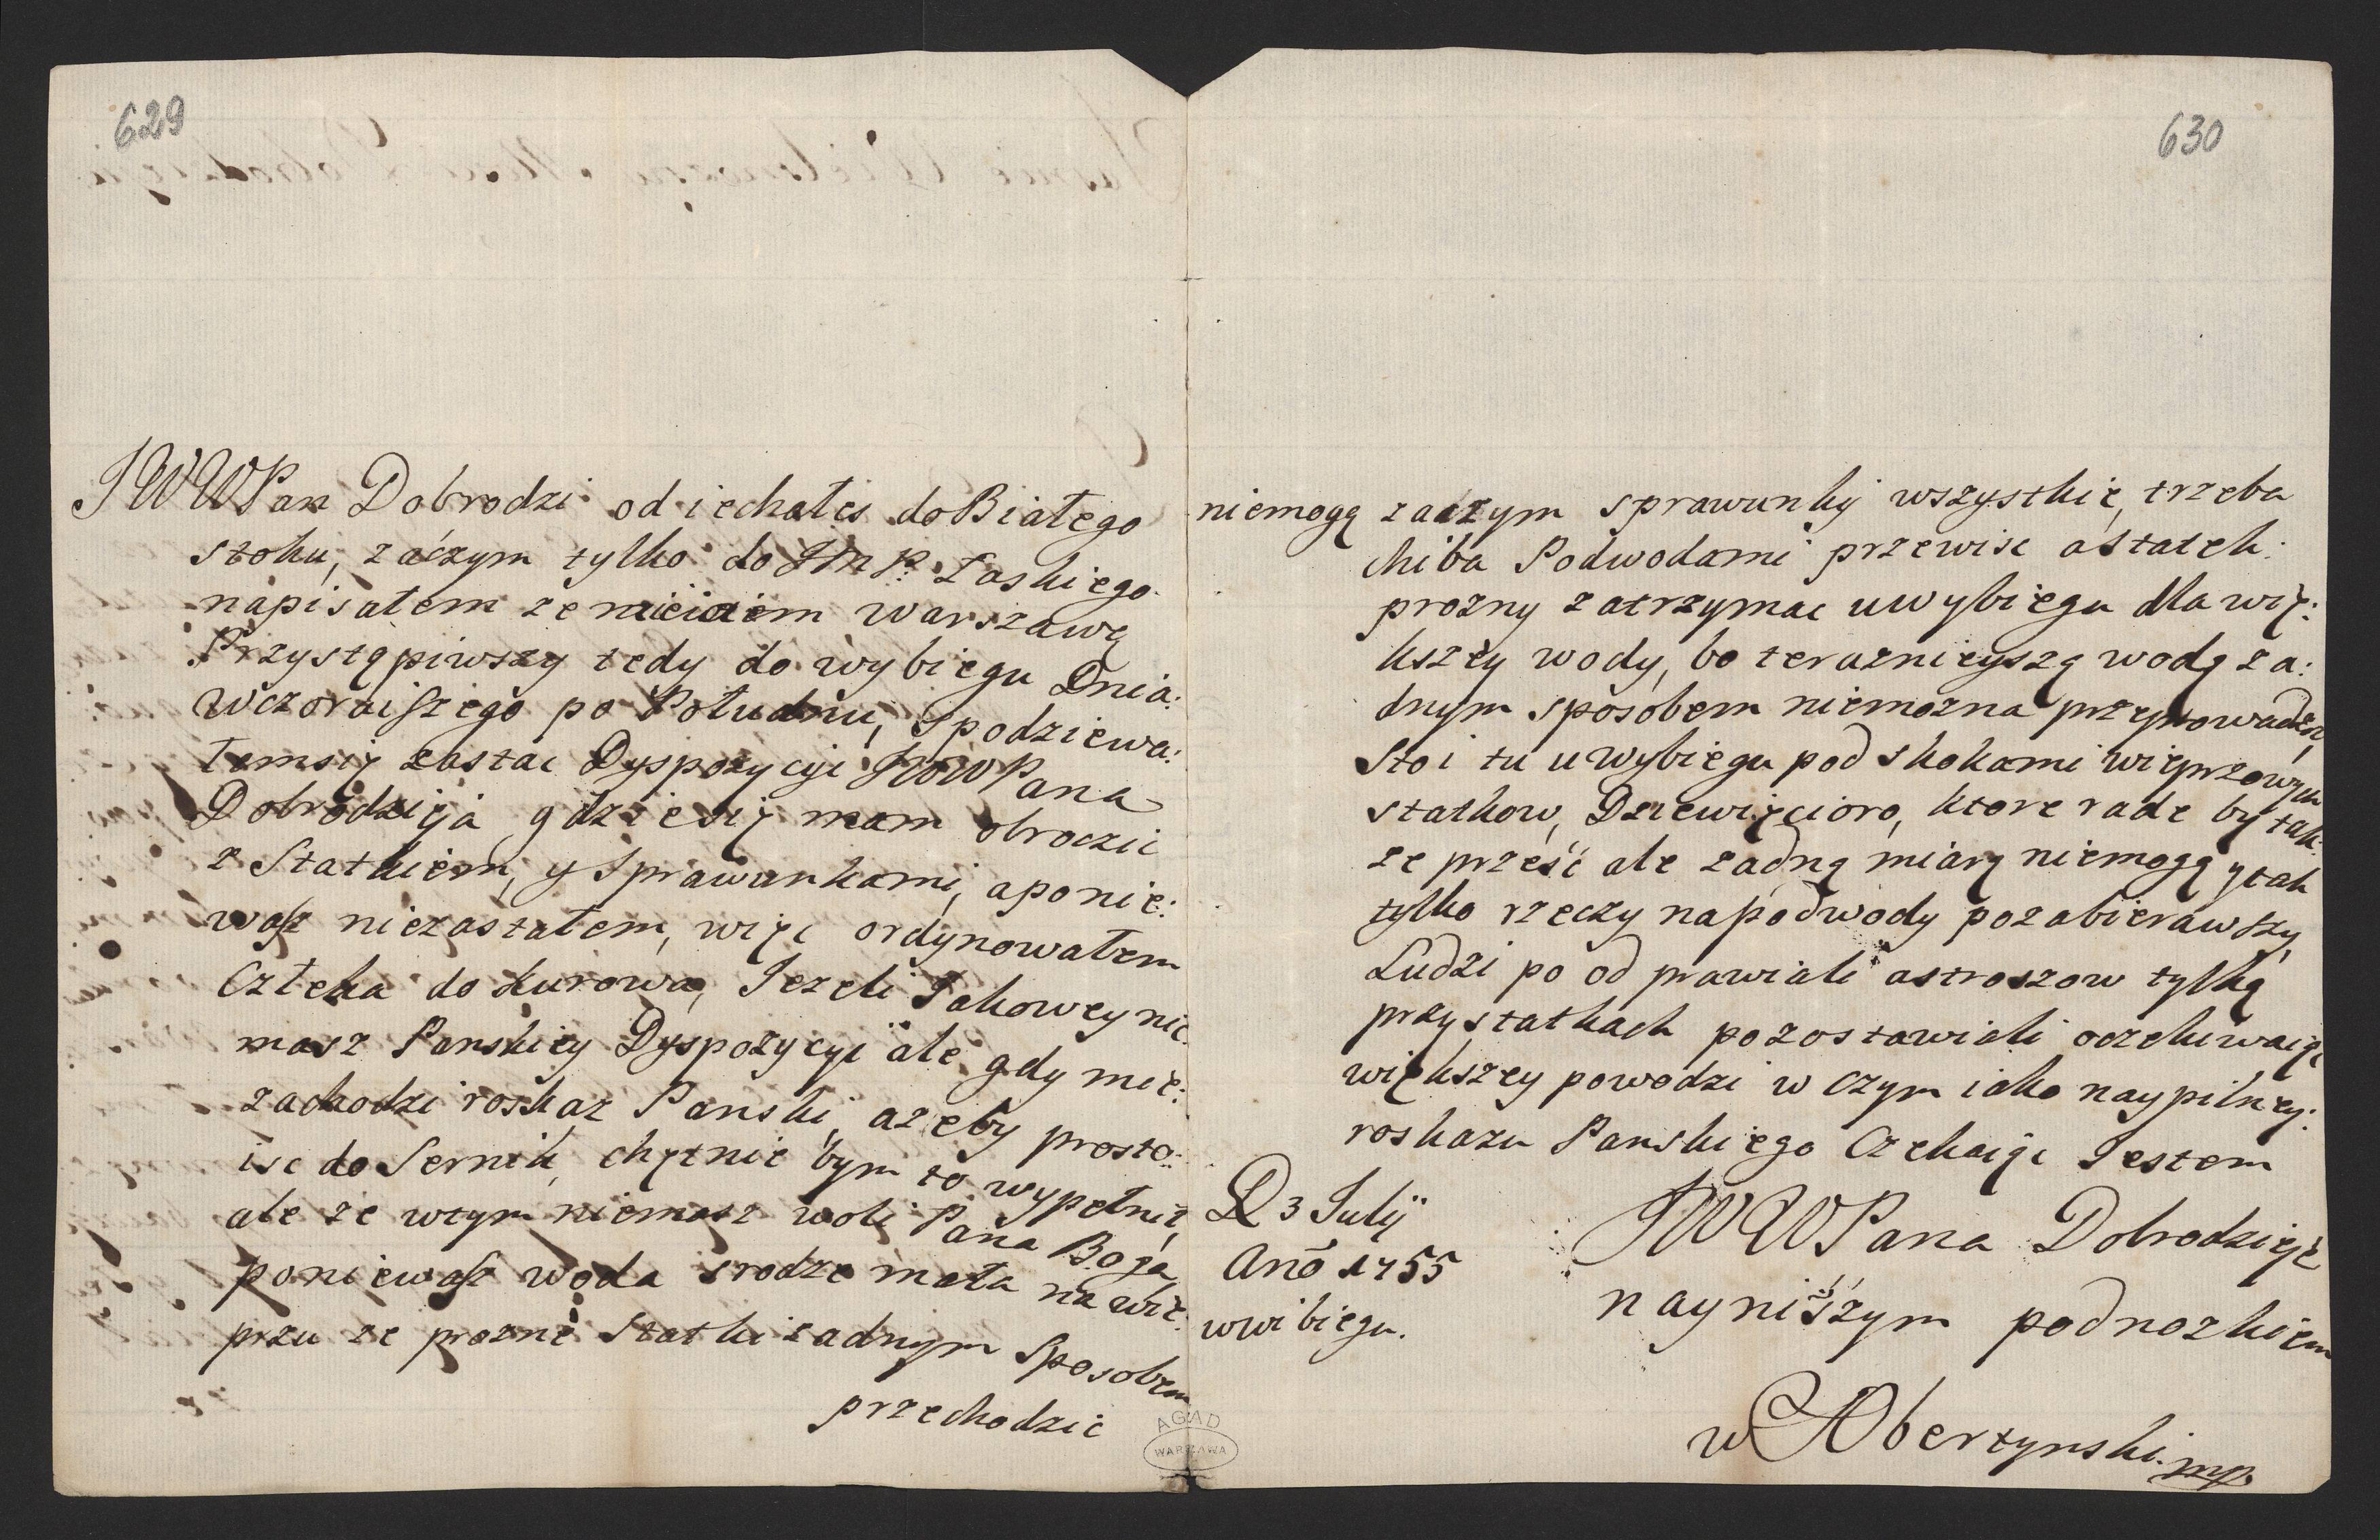 629
JWWPan Dobrodzi: odiechałes doBiałego
stoku, zaczym tylko do JMP: Łaskiego
napisałem ze Warszawę
Przystąpiwszy tedy do wybiegu Dnia:
Wczoraiszego po Południu, spodziewa:
łemsię zastac Dyspozycyi JWWPana
Dobrodzieja gdziesię mam obroczic
z Statkiem, y Sprawunkami, aponie:
wasz niezastałem, więc ordynowałem
Człeka do Kurowa, Iezeli Iakowey nie:
masz Panskiey Dyspozycyi ale gdy mie:
zachodzi roskaz Panski, azeby prosto:
isc do Sernik, chętnie bym to wypełnił,
ale ze wtym niemasz woli Pana Boga
poniewasz woda srodze mała na wie:
przu ze prozne Statki zadnym Sposobem
przechodzic
AGAD
WARSZAWA
630
niemogą zaczym sprawunky wszystkie, trzeba
chiba Podwodami przewisc astatek:
prozny zatrzymac uwybiegu dla wię:
kszey wody, bo teraznieyszą wodą za:
dnym sposobem niemozna przyprowadzic
Stoi tu uwybiegu pod skokami wieprzowym
statkow, Dziewięcioro, ktore rade by tak:
ze prześć ale zadną miarą niemogą ytak
tylko rzeczy napodwody pozabierawszy
Ludzi po od prawiali astroszow tylką
przystatkach pozostawiali oczekiwaiąc
większey powodzi w czym iako naypilney:
roskazu Panskiego Czekaiąc Iestem
JWWPana Dobrodzieje
nayniszym podnozkiem
D 3 Iulij
Anō 1755
wwibiegu.
w Obertynski mp